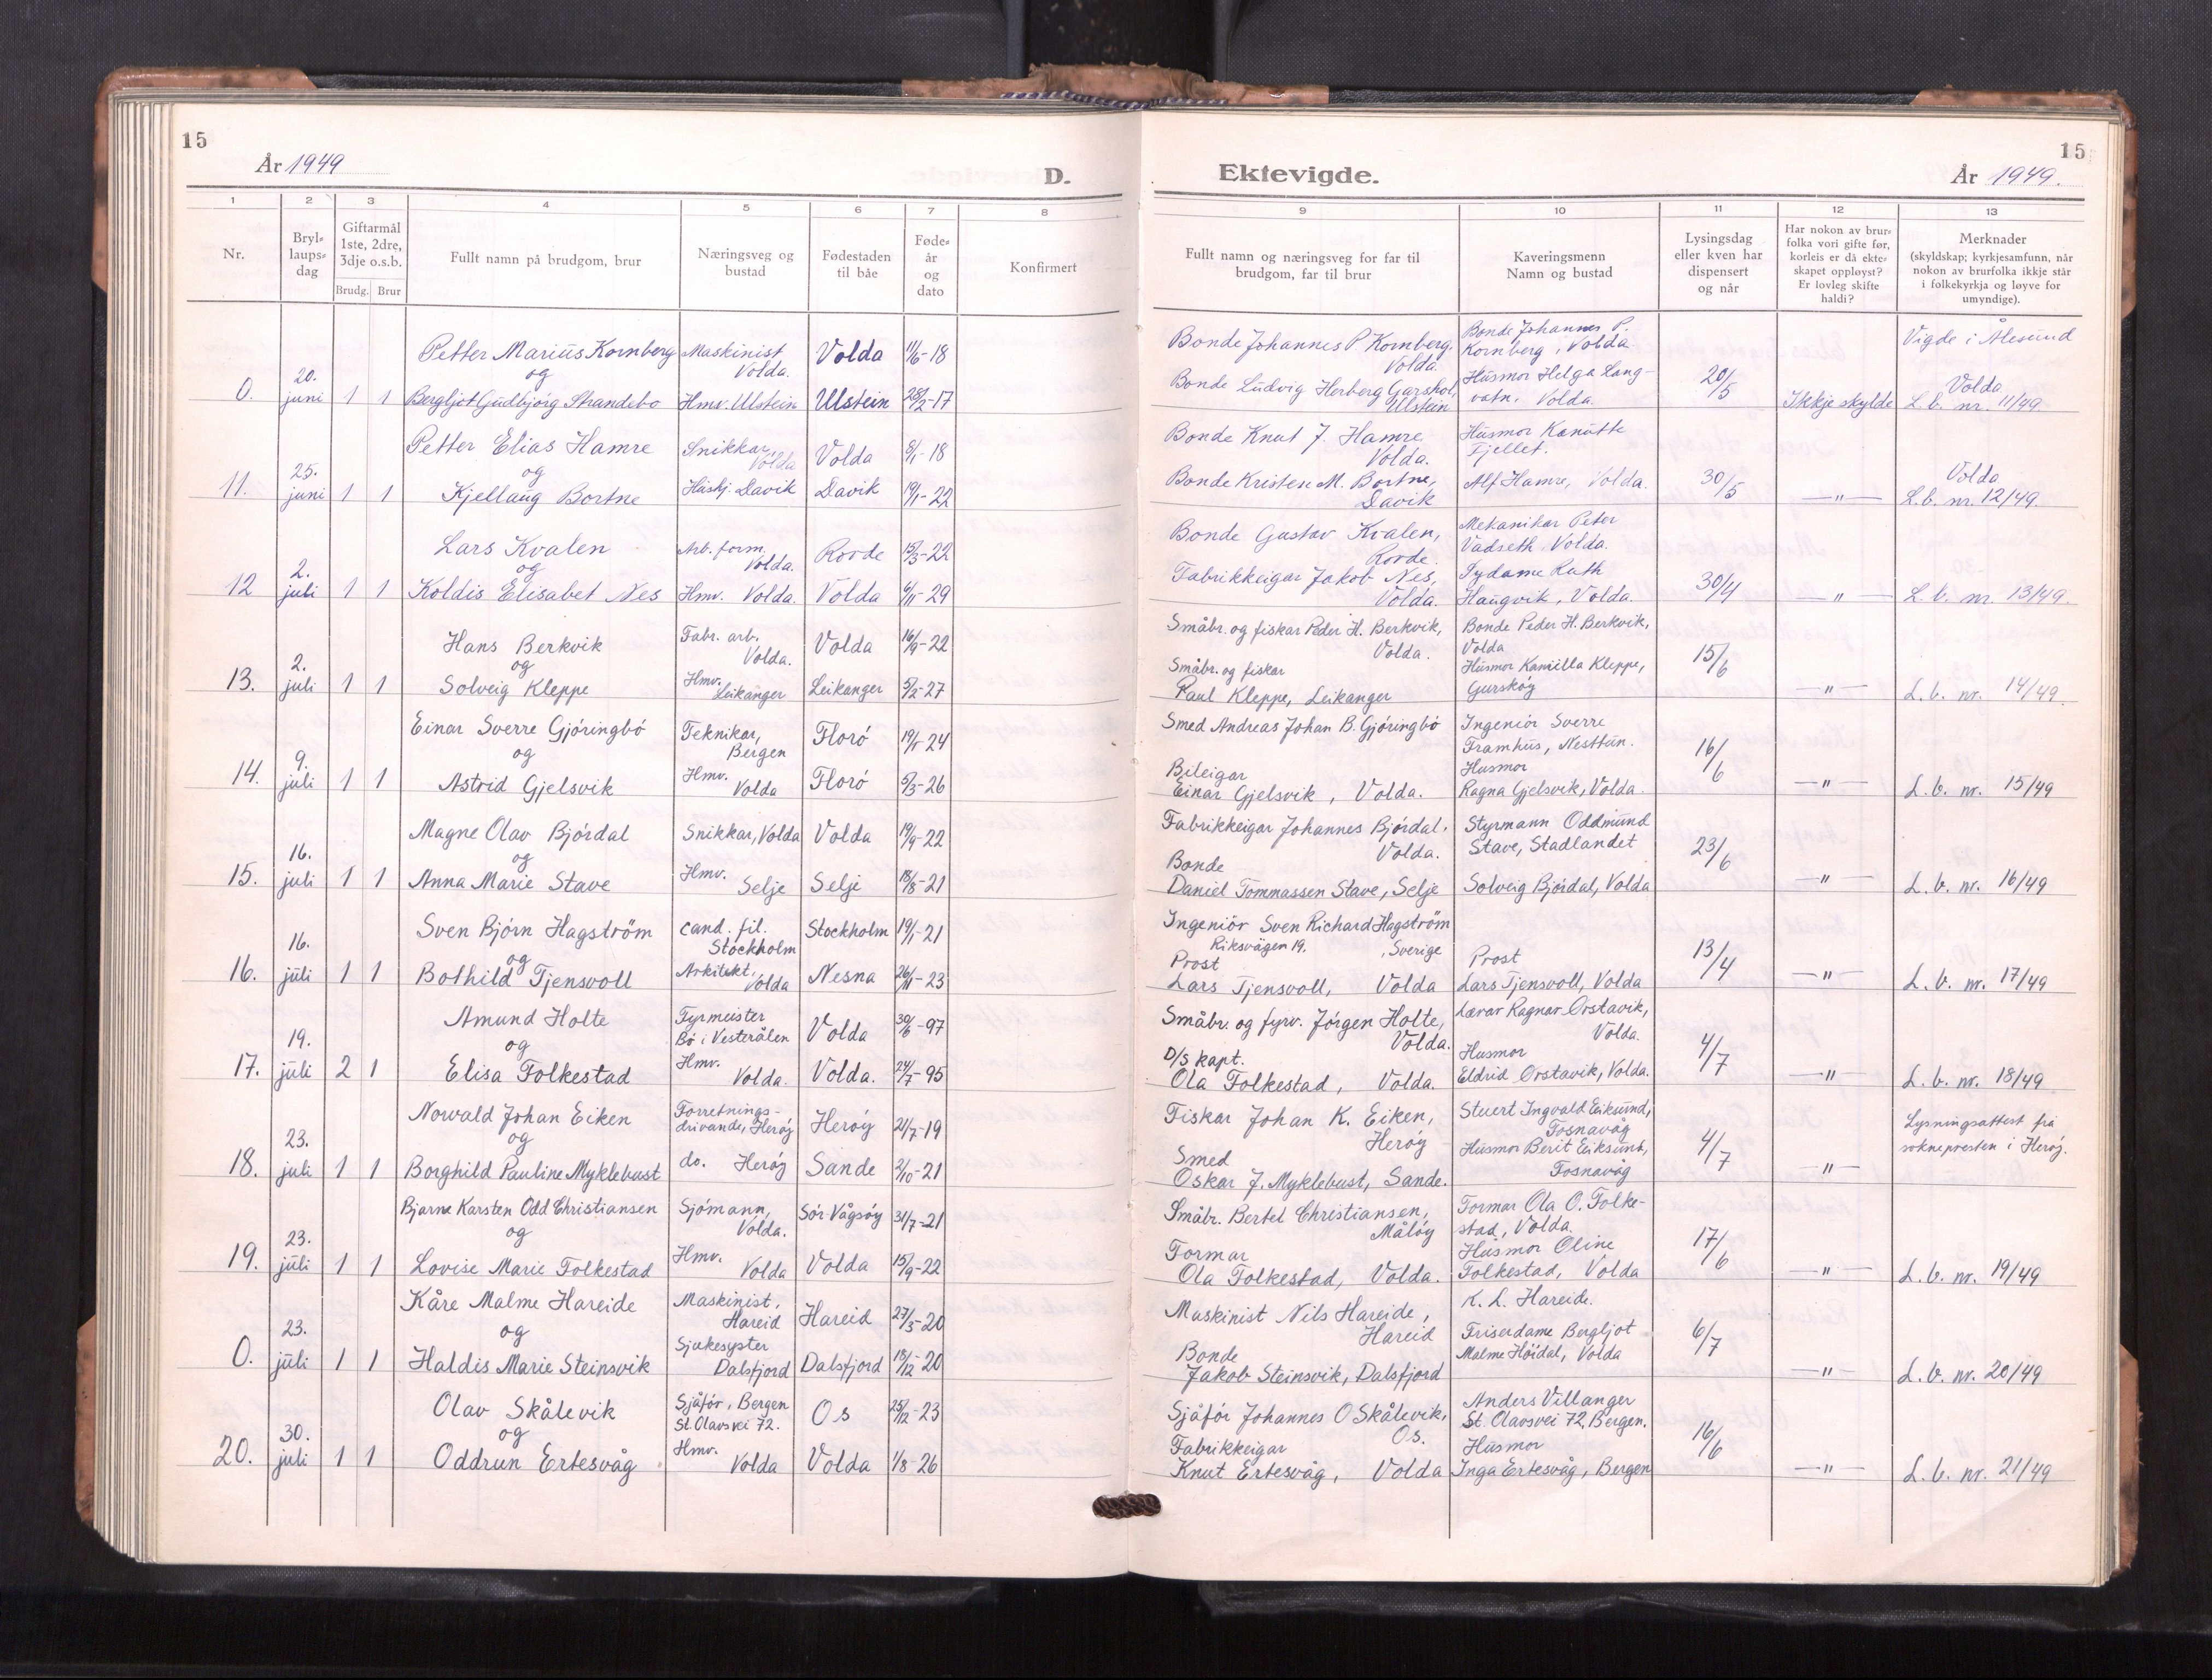 15
År 1949
D.
Ektevigde.
År 1949.
15
1 2 3 4 5 6 7 8 9 10 11 12 13
Nr.
Bryl-
laups-
dag
Giftarmål
1ste, 2dre,
3dje o.s.b.
Brudg. Brur
Fullt namn på brudgom, brur
Næringsveg og
bustad
Fødestaden
til båe
Føde-
år
og
dato
Konfirmert
Fullt namn og næringsveg for far til
brudgom, far til brur
Kaveringsmenn
Namn og bustad
Lysingsdag
eller kven har
dispensert
og når
Har nokon av brur-
folka vori gifte før,
korleis er då ekte-
skapet oppløyst?
Er lovleg skifte
haldi?
Merknader
(skyldskap; kyrkjesamfunn, når
nokon av brurfolka ikkje står
i folkekyrkja og løyve for
umyndige).
0. 20. juni 1 1
Petter Marius Kornberg
og
Bergljot Gudbjörg Strandebo
Maskinist
Volda.
Hmv. Ulstein
Volda 11/6-18
Ulstein 28/2-17
Bonde Johannes P Kornberg.
Volda.
Bonde Ludvig Herberg Garshol,
Ulstein
Bonde Johannes P.
Kornberg, Volda
Husmor Helga Lang-
vatn. Volda.
20/5
Ikkje skylde
Vigde i Ålesund
Volda
L.b. nr. 11/49
11. 25. juni 1 1
Petter Elias Hamre
og
Kjellaug Bortne
Snikkar,
Volda
Hushj. Davik
Volda 8/1-18
Davik 19/1-22
Bonde Knut J. Hamre
Volda.
Bonde Kristen M. Bortne,
Davik
Husmor Kanutte
Fjellet.
Alf Hamre, Volda.
30/5
—"—
Volda
L.b. nr. 12/49.
12 2. juli 1 1
Lars Kvalen
og
Koldis Elisabet Nes
Arb. form.
Volda.
Hmv. Volda.
Rovde 15/3-22
Volda 6/11-29
Bonde Gustav Kvalen,
Rovde.
Fabrikkeigar Jakob Nes,
Volda.
Mekanikar Peter
Vadseth Volda.
Sydame Ruth
Haugvik, Volda.
30/4
—"—
L.b. nr. 13/49.
13. 2. juli 1 1
Hans Berkvik
og
Solveig Kleppe
Fabr. arb.
Volda.
Hmv.
Leikanger
Volda 16/9-22
Leikanger 5/2-27
Småbr. og fiskar Peder H. Berkvik,
Volda.
Småbr. og fiskar
Paul Kleppe, Leikanger
Bonde Peder H. Berkvik,
Volda
Husmor Kamilla Kleppe,
Gurskøy
15/6
—"—
L.b. nr. 14/49.
14. 9. juli 1 1
Einar Sverre Gjóringbó
og
Astrid Gjelsvik
Teknikar,
Bergen
Hmv.
Volda
Floró
Floró 5/3-26
Smed Andreas Johan B. Gjóringbó
Bileigar
Einar Gjelsvik, Volda.
Ingeniór Sverre
Framhus, Nesttun.
Husmor
Ragna Gjelsvik, Volda.
16/6
—"—
L.b. nr. 15/49
15. 16. juli 1 1
Magne Olav Bjórdal
og
Anna Marie Stave
Snikkar, Volda
Hmv.
Selje
Volda 19/9-22
Selje 18/8-21
Fabrikkeigar Johannes Bjórdal,
Volda.
Bonde
Daniel Tommassen Stave, Selje
Styrmann Oddmund
Stave, Stadlandet
Solveig Bjórdal, Volda
23/6
—"—
L.b. nr. 16/49
16. 16. juli 1 1
Sven Bjórn Hagström
og
Bothild Tjensvoll
cand. fil.
Stockholm
Arkitekt,
Volda
Stockholm 19/1-21
Nesna 26/11-23
Ingeniör Sven Richard Hagström
Riksvägen 19. , Sverige
Prost
Lars Tjensvoll, Volda
Prost
Lars Tjensvoll, Volda
13/4
—"—
L.b. nr. 17/49
17. 19. juli 2 1
Amund Holte
og
Elisa Folkestad
Fyrmeister
Bó i Vesterålen
Hmv.
Volda.
Volda 30/6-97
Volda. 24/7-95
Småbr. og fyrv. Jórgen Holte,
Volda.
D/S kapt.
Ola Folkestad, Volda.
Lærar Ragnar Orstavik,
Volda.
Husmor
Eldrid Orstavik, Volda.
4/7
—"—
L.b. nr. 18/49
18. 23. juli 1 1
Norvald Johan Eiken
og
Borghild Pauline Myklebust
Forretnings-
drivande, Herøy
do. Herøy
Herøy 21/7-19
Sande 2/10-21
Fiskar Johan K. Eiken,
Herøy
Smed
Oskar J. Myklebust, Sande.
Stuert Ingvald Eiksund,
Fosnavåg
Husmor Berit Eiksund,
Fosnavåg
4/7
—"—
Lysningsattest frå
soknepresten i Herøy.
19. 23. juli 1 1
Bjarne Karsten Odd Christiansen
og
Lovise Marie Folkestad
Sjómann,
Volda.
Hmv.
Volda
Sór-Vågsóy 31/7-21
Volda 15/9-22
Småbr. Bertel Christiansen,
Målóy
Formar
Ola Folkestad, Volda.
Formar Ola O. Folke-
stad, Volda.
Husmor Oline
Folkestad, Volda
17/6
—"—
L.b. nr. 19/49
0. 23. juli 1 1
Kåre Malme Hareide
og
Haldis Marie Steinsvik
Maskinist,
Hareid
Sjukesyster
Dalsfjord
Hareid 27/5-20
Dalsfjord 18/12-20
Maskinist Nils Hareide,
Hareid
Bonde
Jakob Steinsvik, Dalsfjord
K. L. Hareide.
Friserdame Bergljot
Malme Höidal, Volda
6/7
—"—
L.b. nr. 20/49
20. 30. juli 1 1
Olav Skålevik
og
Oddrun Ertesvåg
Sjåfór, Bergen
St. Olavs vei 72.
Hmv.
Volda
Os 25/12-23
Volda 1/8-26
Sjåfór Johannes O Skålevik,
Os.
Fabrikkeigar
Knut Ertesvåg, Volda
Anders Villanger
St. Olavsvei 72, Bergen.
Husmor
Inga Ertesvåg, Bergen
16/6
—"—
L.b. nr. 21/49